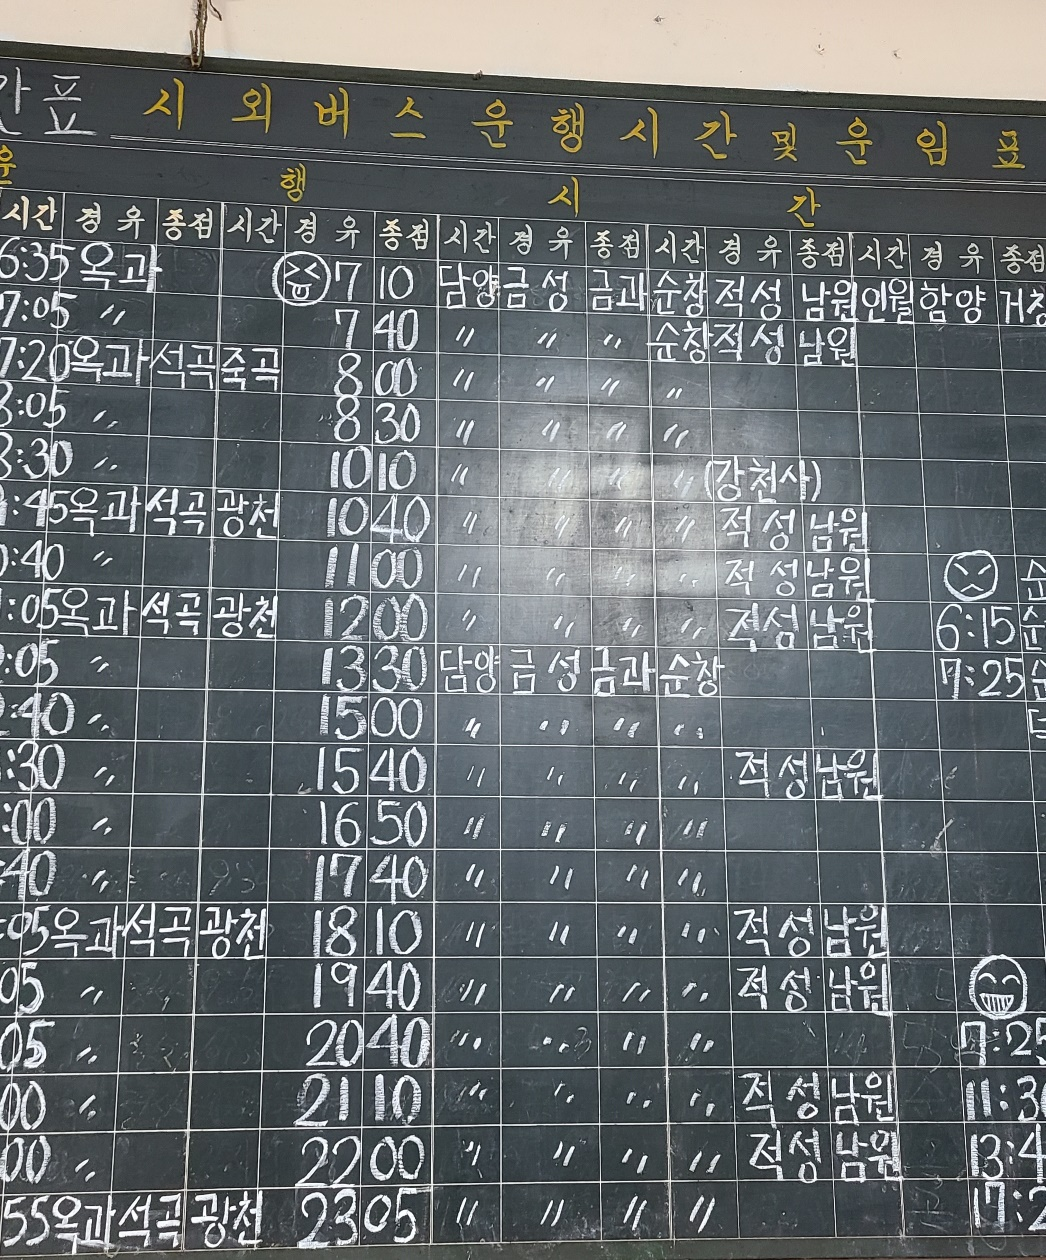 표 시 외 버 스 운 행 시 간 및 운 임 표
운 행 시 간
시간 경 유 종점 시간 경 유 종점 시간 경 유 종점 시간 경 유 종점 시간 경 유 종점
6:35 옥과 7 10 담양 금성 금과 순창 적성 남원 인월 함양 거창
7:05 〃 7 40 〃 〃 〃 순창 적성 남원
7:20 옥과 석곡 죽곡 8 00 〃 〃 〃 〃
8:05 〃 8 30 〃 〃 〃 〃
8:30 〃 10 10 〃 〃 〃 〃 (강천사)
:45 옥과 석곡 광천 10 40 〃 〃 〃 〃 적성 남원
:40 〃 11 00 〃 〃 〃 〃 적성 남원
:05 옥과 석곡 광천 12 00 〃 〃 〃 〃 적성 남원 6:15 순
:05 〃 13 30 담양 금성 금과 순창 7:25 순
:40 〃 15 00 〃 〃 〃 〃
:30 〃 15 40 〃 〃 〃 〃 적성 남원
:00 〃 16 50 〃 〃 〃 〃
:40 〃 17 40 〃 〃 〃 〃
:05 옥과 석곡 광천 18 10 〃 〃 〃 〃 적성 남원
05 〃 19 40 〃 〃 〃 〃 적성 남원
05 〃 20 40 〃 〃 〃 〃 7:25
00 〃 21 10 〃 〃 〃 〃 적성 남원 11:3
00 〃 22 00 〃 〃 〃 〃 적성 남원 13:4
55 옥과 석곡 광천 23 05 〃 〃 〃 〃 17:2